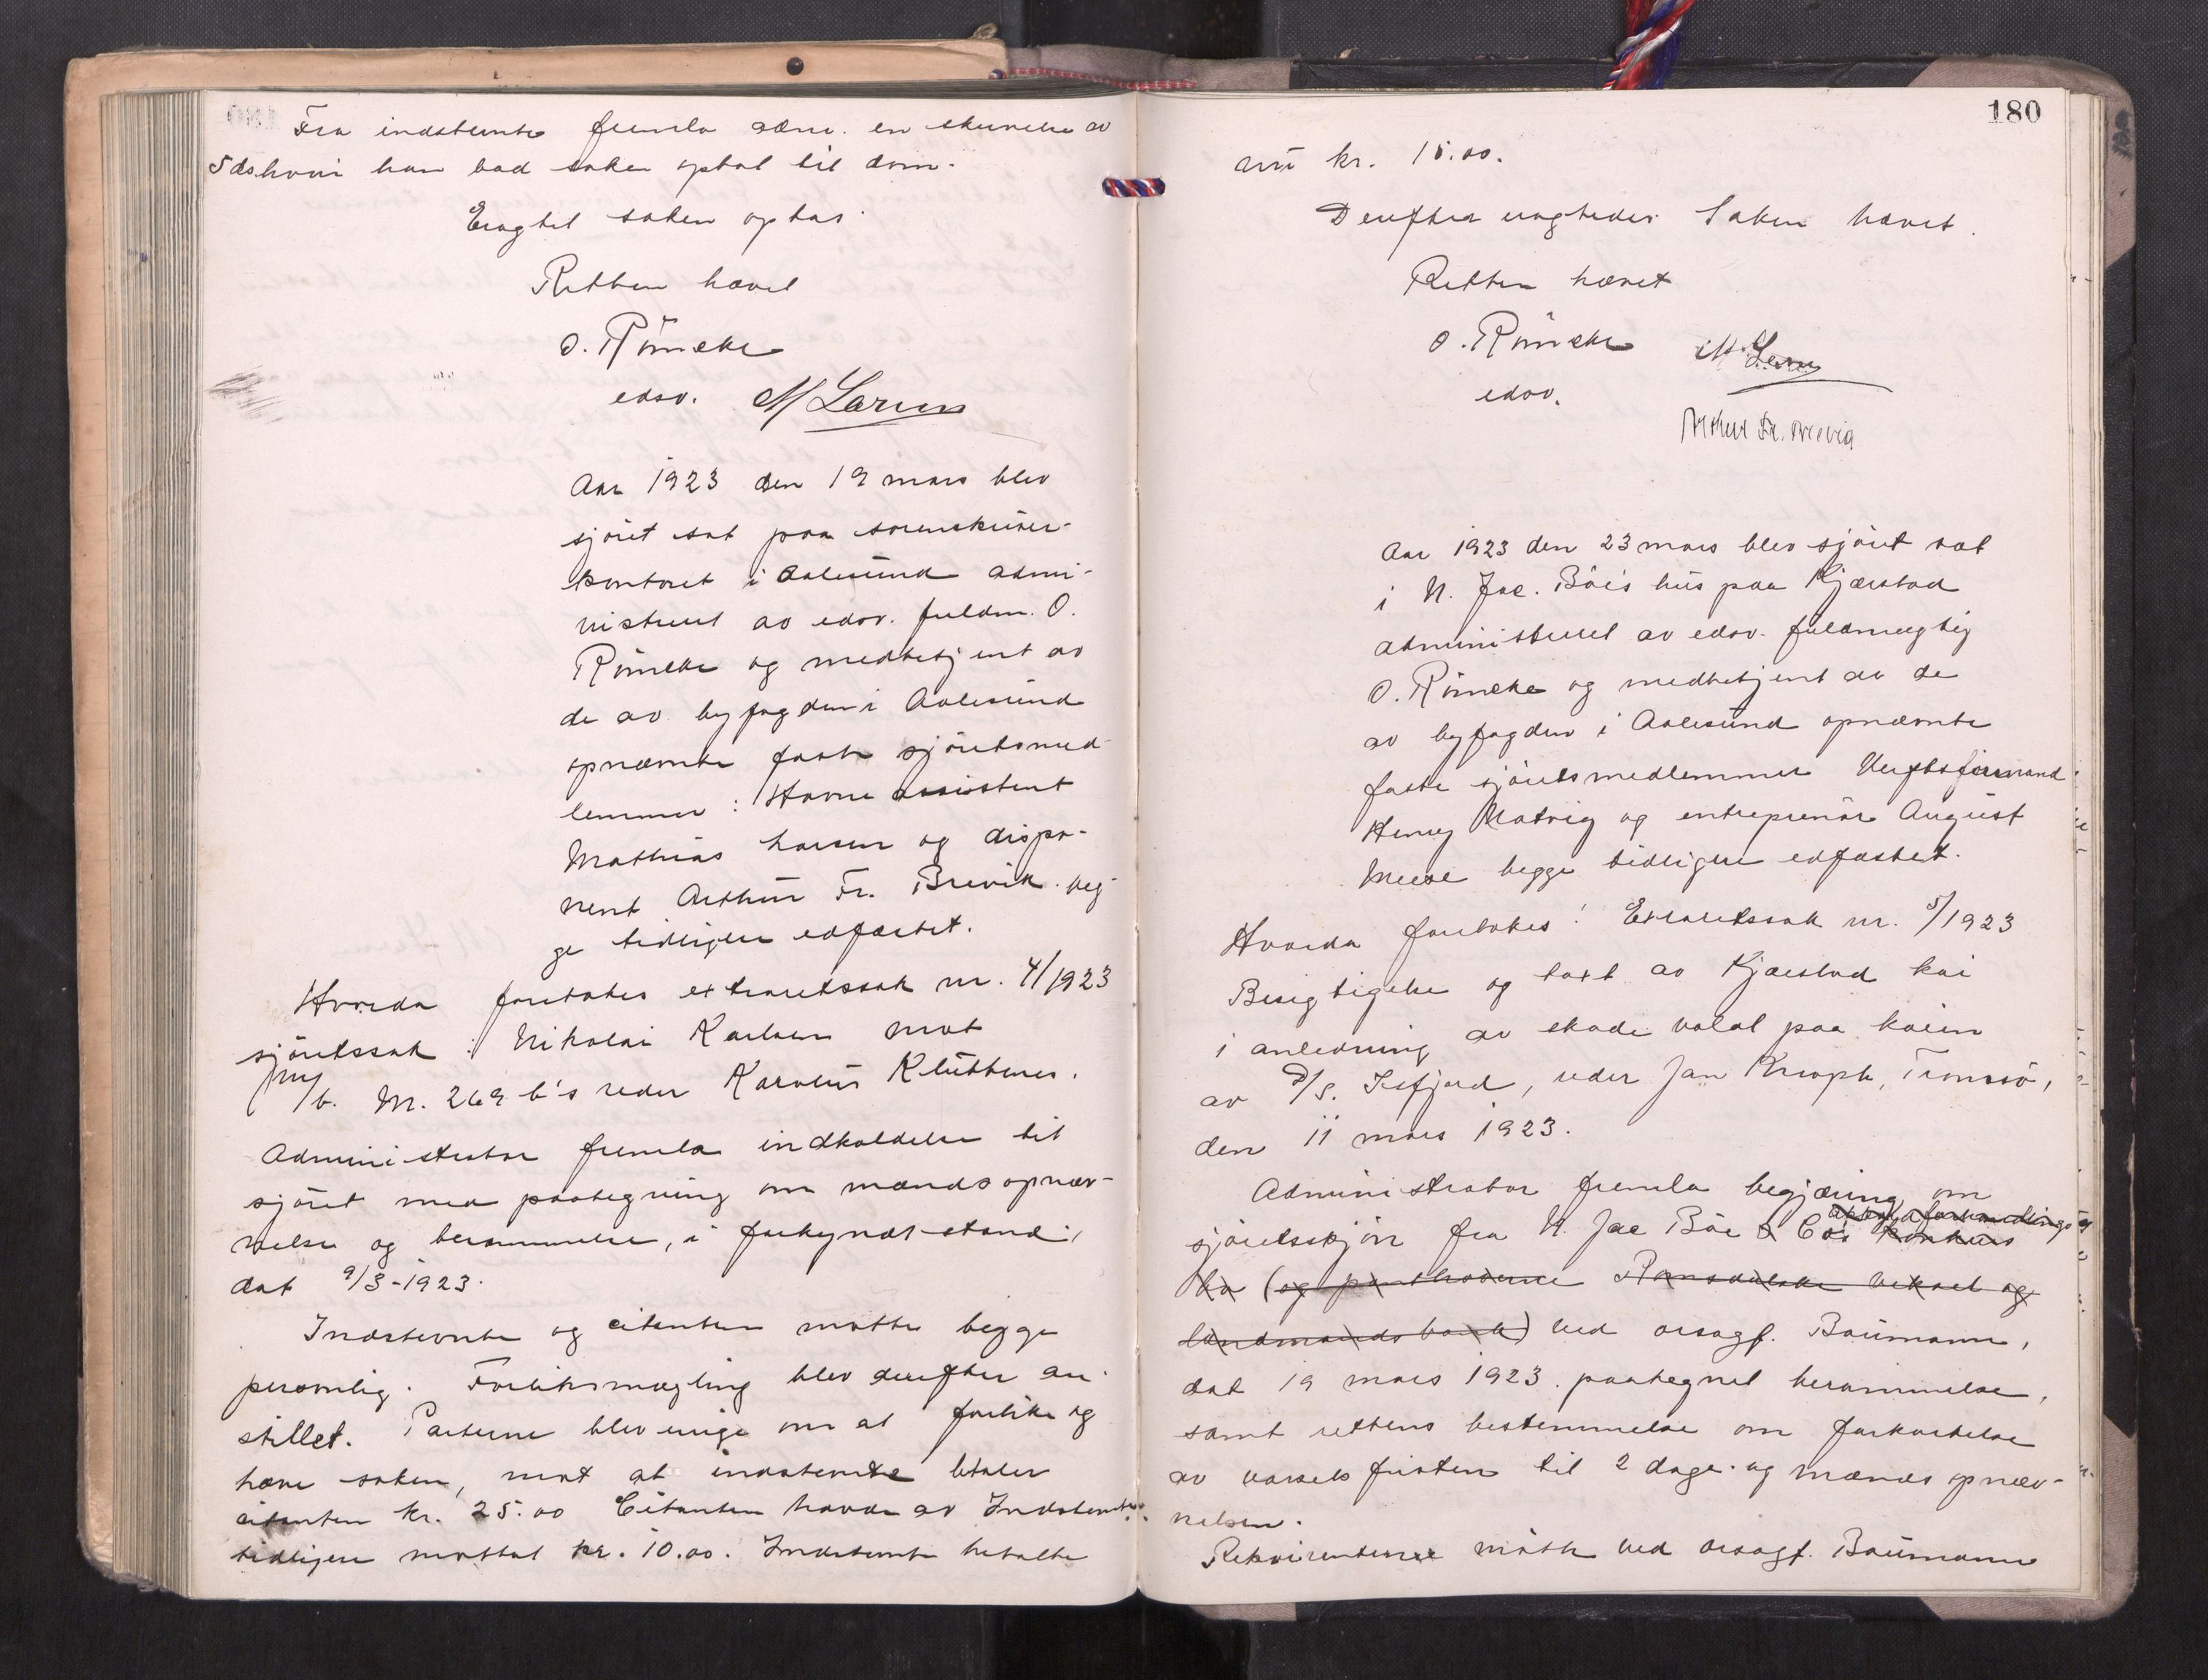 Fra indstevnte fremla adm. en skrivelse av
5ds hvori han bad saken optat til dom.
Eragtet saken optas.
Retten hævet
O. Römcke
edsv. M Larsen
Aar 1923 den 19 mars blev
sjöret sat paa sorenskriver-
kontoret i Aalesund admi-
nistreret av edsv. fuldm. O.
Römcke og medbetjent av
de av byfogden i Aalesund
opnævnte faste sjöretsmed-
lemmer: Havneassistent
Mathias Larsen og dispo-
nent Arthur Fr. Brevik beg-
ge tidligere edfæstet.
Hvorda foretokes extraretssak nr. 4/1923
sjöretssak: Nikolai Karlsen mot
m/b. M. 269 b's reder Karolus Klubbenes.
Administrator fremla indkaldelse til
sjöret med paategning om mændsopnæv-
nelse og berammelse, i forkyndt stand,
dat 9/3-1923.
Indstevnte og citanten mötte begge
personlig. Forliksmægling blev derefter an-
stillet. Parterne blev enige om at forlike og
hæve saken, mot at indstevnte betaler
citanten kr. 25.00 Citanten havde av Indstevnte
tidligere mottat kr. 10.00. Indstevnte betalte
180
nu kr. 15.00.
Derefter eragtedes Saken hævet.
Retten hævet
O. Römcke M. Larsen
edsv.
Arthur Fr. Brevig
Aar 1923 den 23 mars blev sjöret sat
i N. Jac. Böe's hus paa Kjærstad
administreret av edsv. fuldmægtig
O. Römcke og medbetjent av de
av byfogden i Aalesund opnævnte
faste sjöretsmedlemmer Verftsformand
Henry Natvig og entreprenör August
begge tidligere edfæstet.
Hvorda foretokes: Extraretssak nr. 5/1923
Besigtigelse og taxt av Kjærstad kai
i anledning av skade voldt paa kaien
av D/S. Isfjord, reder Jan Kroph, Tromsö,
den 11 mars 1923.
Administrator fremla begjæring om
akkordforhandlings
sjöretsskjön fra N. Jac Böe & Co's konkurs
bo (og panthaverne Romsdalske veksel og
landmandsbank) ved orsagf. Baumann,
dat 19 mars 1923. paategnet berammelse,
samt rettens bestemmelse om forkortelse
av varselsfristen til 2 dage og mændsopnæv-
nelsen.
Rekvirenterne mötte ved orsagf. Baumann